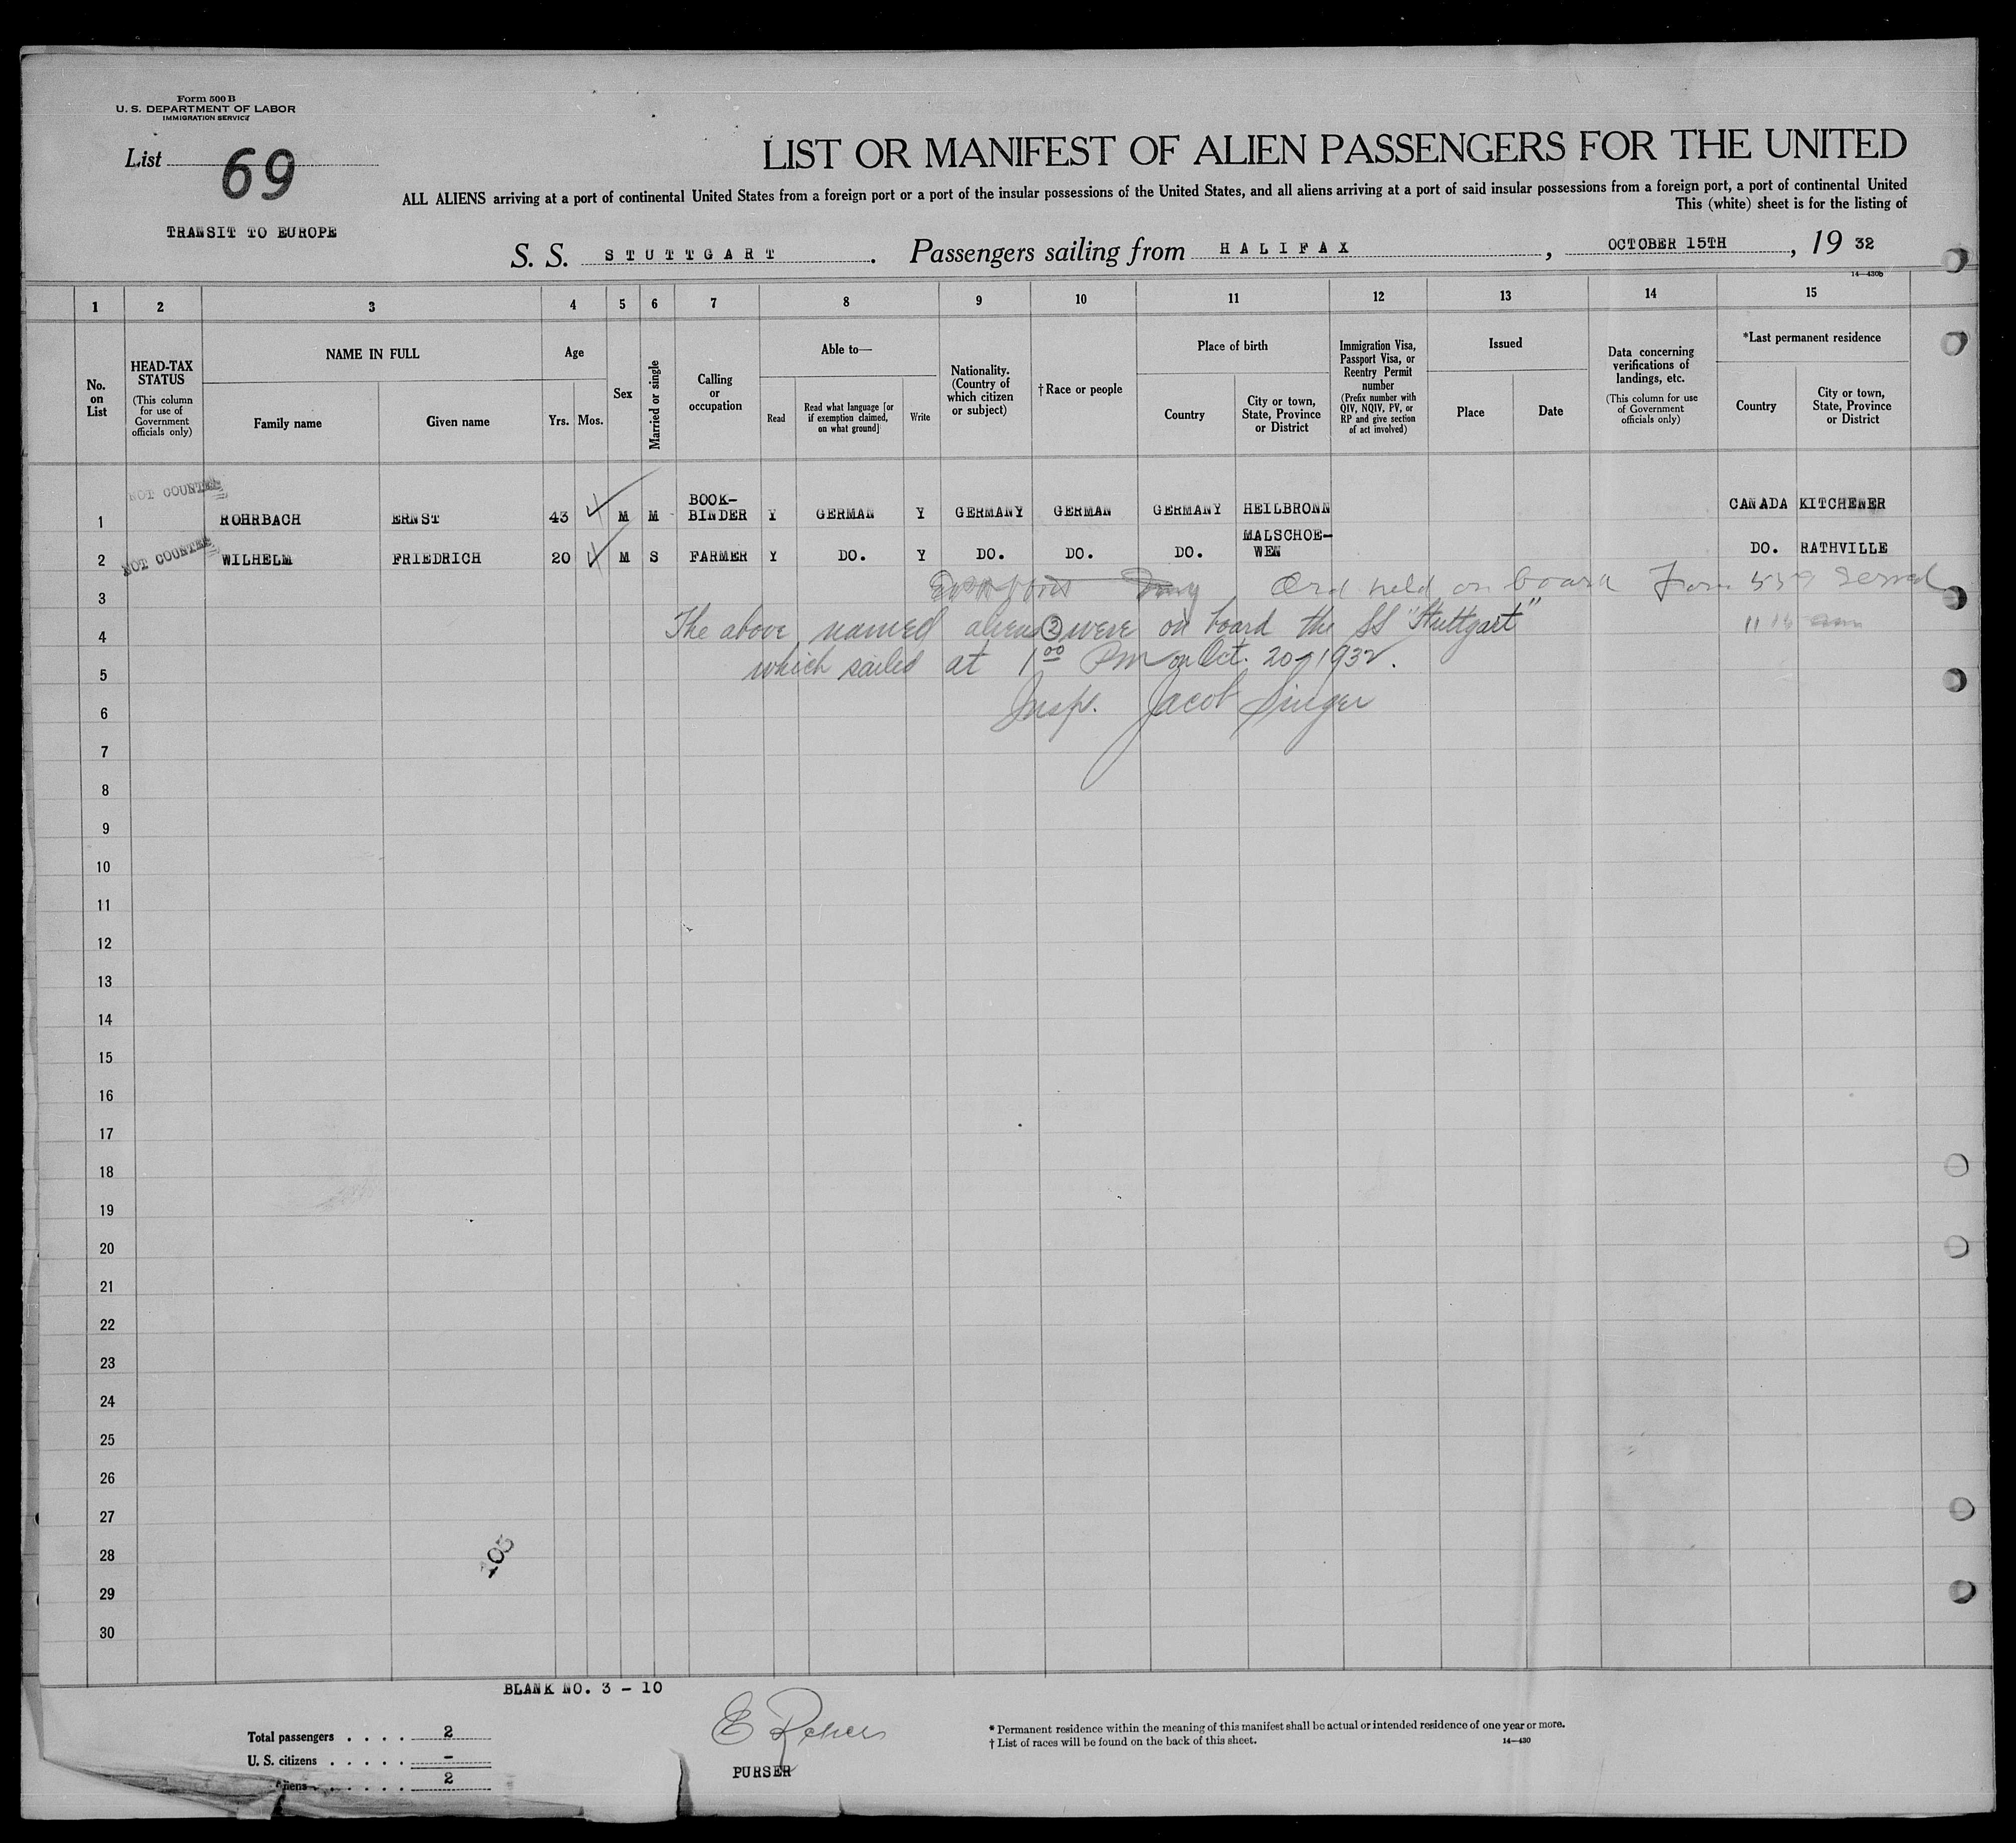 Form 500 B
U. S. DEPARTMENT OF LABOR
IMMIGRATION SERVICE
List 69
TRANSIT TO EUROPE
LIST OR MANIFEST OF ALIEN PASSENGERS FOR THE UNITED
ALL ALIENS arriving at a port of continental United States from a foreign port or a port of the insular possessions of the United States, and all aliens arriving at a port of said insular possessions from a foreign port, a port of continental United
This (white) sheet is for the listing of
S. S. STUTTGART. Passengers sailing from HALIFAX, OCTOBER 15TH, 19 32
14—430b
1 2 3 4 5 6 7 8 9 10 11 12 13 14 15
No. on List
HEAD-TAX STATUS (This column for use of Government officials only)
NAME IN FULL
Family name Given name
Age
Yrs. Mos.
Sex
Married or single
Calling or occupation
Able to—
Read Read what language [or if exemption claimed, on what ground] Write
Nationality. (Country of which citizen or subject)
† Race or people
Place of birth
Country City or town, State, Province or District
Immigration Visa, Passport Visa, or Reentry Permit number (Prefix number with QIV, NQIV, PV, or RP and give section of act involved)
Issued
Place Date
Data concerning verifications of landings, etc. (This column for use of Government officials only)
*Last permanent residence
Country City or town, State, Province or District
NOT COUNTED
1 ROHRBACH ERNST 43 M M BOOK-BINDER Y GERMAN Y GERMANY GERMAN GERMANY HEILBRONN CANADA KITCHENER
NOT COUNTED
2 WILHELM FRIEDRICH 20 M S FARMER Y DO. Y DO. DO. DO. MALSCHOE-WEN DO. RATHVILLE
3 Ord held on board Form 539 Served
4 The above named aliens (2) were on board the SS "Stuttgart" 11 am
5 which sailed at 1 00 PM on Oct. 20-1932.
6 Insp. Jacob Singer
7
8
9
10
11
12
13
14
15
16
17
18
19
20
21
22
23
24
25
26
27
28
29
30
105
BLANK NO. 3 - 10
Total passengers . . . . 2
U. S. citizens . . . . . -
Aliens . . . . . . 2
PURSER
* Permanent residence within the meaning of this manifest shall be actual or intended residence of one year or more.
† List of races will be found on the back of this sheet.
14—430